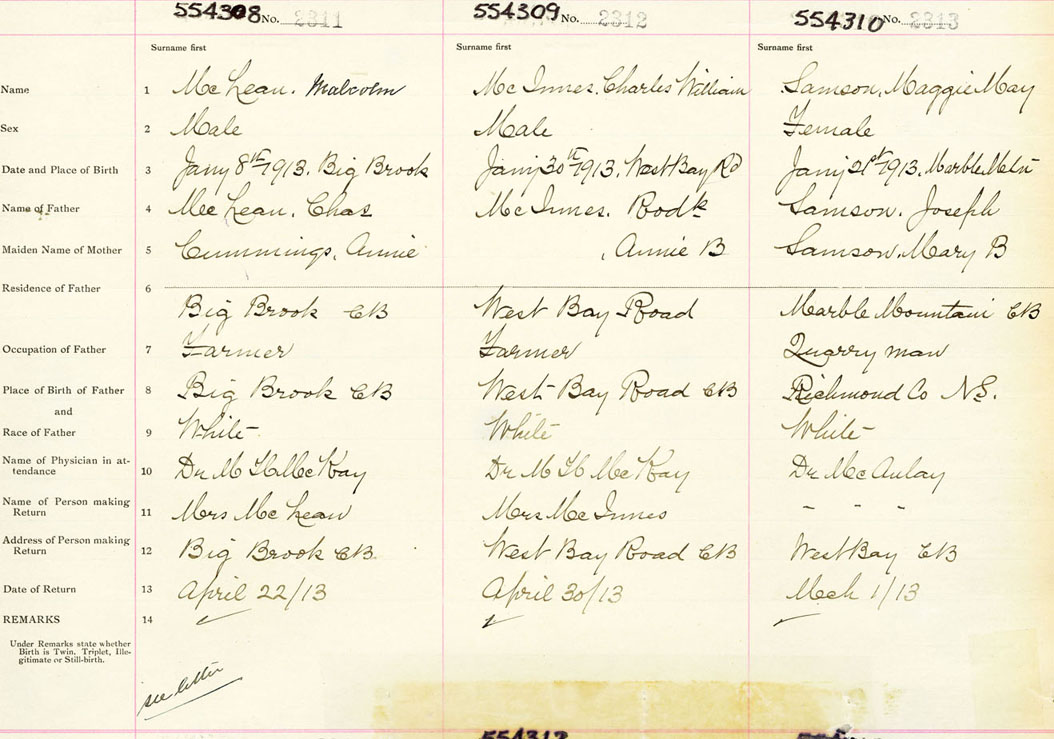 554308 No. 2311 554309 No. 2312 554310 No. 2313
Surname first Surname first Surname first
Name 1 McLean. Malcolm McInnes. Charles William Samson, Maggie May
Sex 2 Male Male Female
Date and Place of Birth 3 Jany 8th 1913. Big Brook Jany 30th 1913. West Bay Rd Jany 21st 1913. Marble Mtn
Name of Father 4 McLean. Chas McInnes. Rodk Samson. Joseph
Maiden Name of Mother 5 Cummings, Annie , Annie B Samson, Mary B
Residence of Father 6
Big Brook CB West Bay Road Marble Mountain CB
Occupation of Father 7 Farmer Farmer Quarry man
Place of Birth of Father 8 Big Brook CB West Bay Road CB Richmond Co N.S.
and
Race of Father 9 White White White
Name of Physician in at-
tendance 10 Dr. M H McKay Dr M H McKay Dr McAulay
Name of Person making
Return 11 Mrs McLean Mrs McInnes " " "
Address of Person making
Return 12 Big Brook CB. West Bay Road CB West Bay CB
Date of Return 13 April 22/13 April 30/13 Mch 1/13
REMARKS 14
Under Remarks state whether
Birth is Twin, Triplet, Ille-
gitimate or Still-birth.
see letter
554312